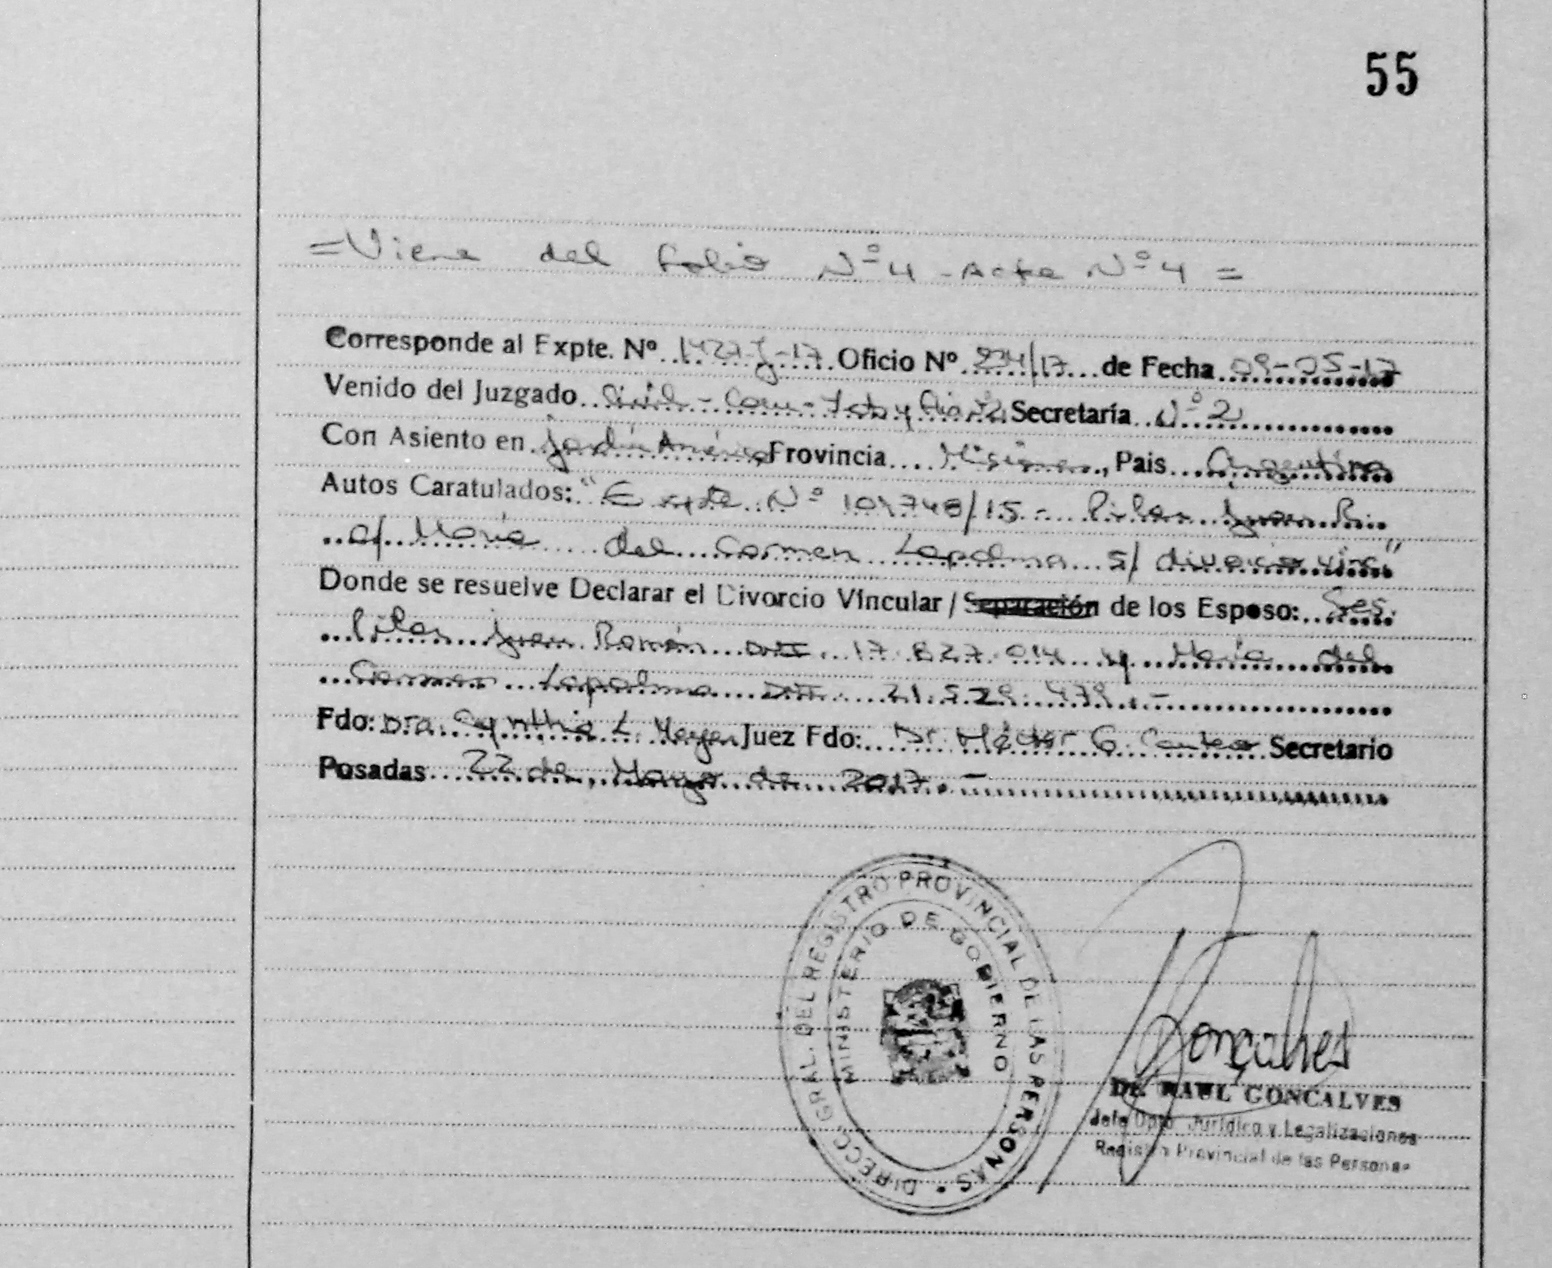 55
=Viene del folio Nº4 - Acta Nº4=
Corresponde al Expte. Nº 1427-J-17 Oficio Nº 234/17 de Fecha 09-05-17
Venido del Juzgado Civil-Com- y Secretaría Nº2
Con Asiento en Jardín América Provincia Misiones, Pais Argentina
Autos Caratulados: "Expte Nº 101748/15- Juan R.
c/ María del Carmen Lapalma s/ divorcio vinc"
Donde se resuelve Declarar el Divorcio Vincular / Separación de los Esposo: Sres.
Juan Román DNI 17.827.014 y María del
Carmen Lapalma DNI 21.529.479.-
Fdo: Dra. Cynthia L. Juez Fdo: Dr. Héctor G. Secretario
Posadas 22 de Mayo de 2017.-
DIRECC. GRAL. DEL REGISTRO PROVINCIAL DE LAS PERSONAS
MINISTERIO DE GOBIERNO
Gonçalves
Dr. RAUL GONCALVES
Jefe Dpto. Jurídico y Legalizaciones
Registro Provincial de las Personas